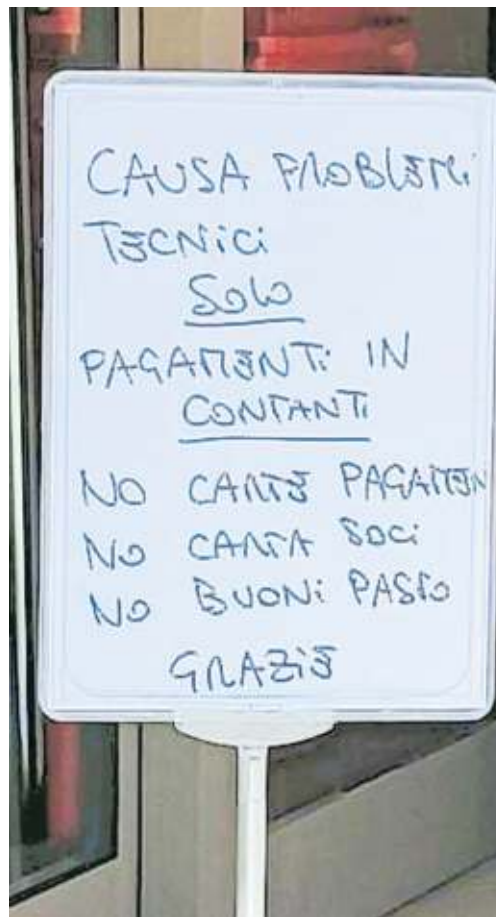 CAUSA PROBLEMi
TECNiCi
SOLO
PAGAMENTi IN
CONTANTi
NO CARTE PAGAMEN
NO CARTA SOCi
NO BUONi PASTO
GRAZiE